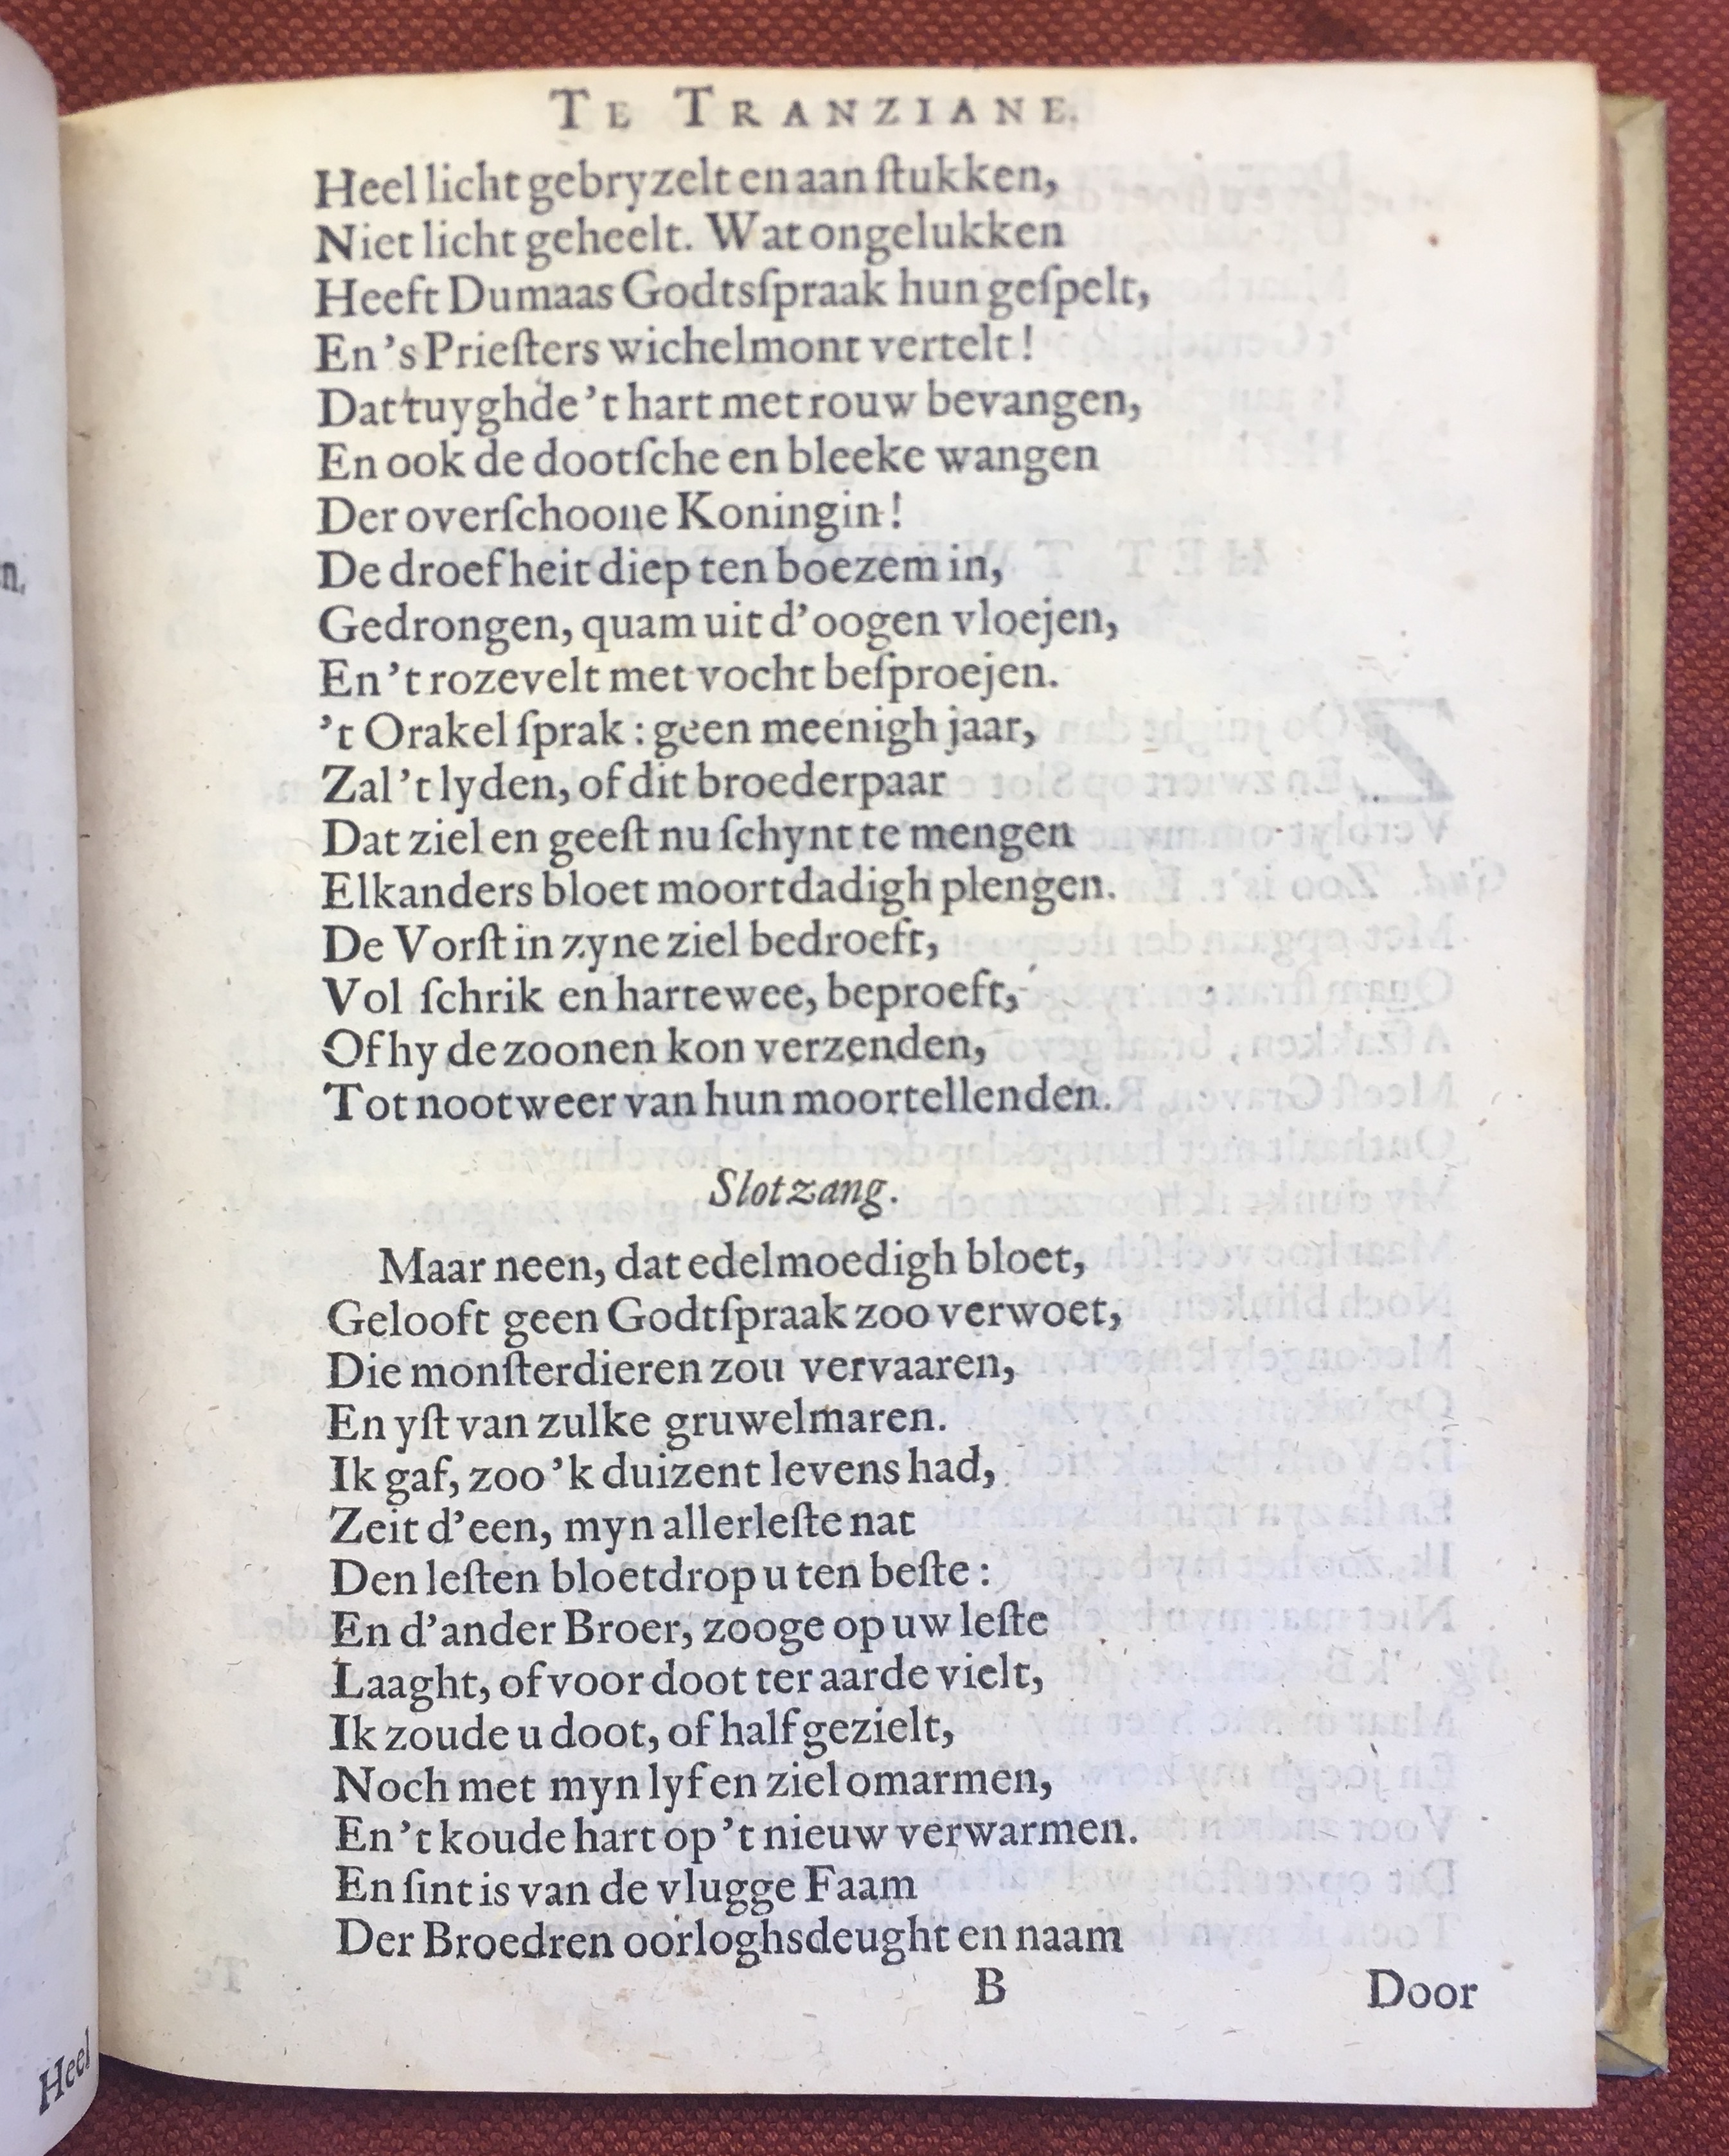 TE TRANZIANE.
Heel licht gebryzelt en aan ſtukken,
Niet licht geheelt. Wat ongelukken
Heeft Dumaas Godtsſpraak hun geſpelt,
En 's Prieſters wichelmont vertelt!
Dat tuyghde 't hart met rouw bevangen,
En ook de dootſche en bleeke wangen
Der overſchoone Koningin!
De droefheit diep ten boezem in,
Gedrongen, quam uit d'oogen vloejen,
En 't rozevelt met vocht beſproejen.
't Orakel ſprak: geen meenigh jaar,
Zal 't lyden, of dit broederpaar
Dat ziel en geeſt nu ſchynt te mengen
Elkanders bloet moortdadigh plengen.
De Vorſt in zyne ziel bedroeft,
Vol ſchrik en hartewee, beproeft,
Of hy de zoonen kon verzenden,
Tot nootweer van hun moortellenden.
Slotzang.
Maar neen, dat edelmoedigh bloet,
Gelooft geen Godtſpraak zoo verwoet,
Die monſterdieren zou vervaaren,
En yſt van zulke gruwelmaren.
Ik gaf, zoo 'k duizent levens had,
Zeit d'een, myn allerleſte nat
Den leſten bloetdrop u ten beſte:
En d'ander Broer, zooge op uw leſte
Laaght, of voor doot ter aarde vielt,
Ik zoude u doot, of half gezielt,
Noch met myn lyf en ziel omarmen,
En 't koude hart op 't nieuw verwarmen.
En ſint is van de vlugge Faam
Der Broedren oorloghsdeught en naam
B Door
n.
Heel